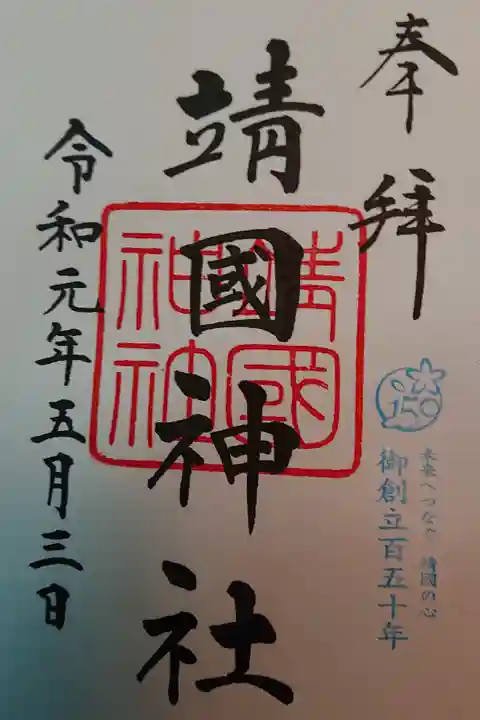 奉拝
150
未来へつなぐ 靖國の心
御創立百五十年
靖國神社
靖國神社
令和元年五月三日